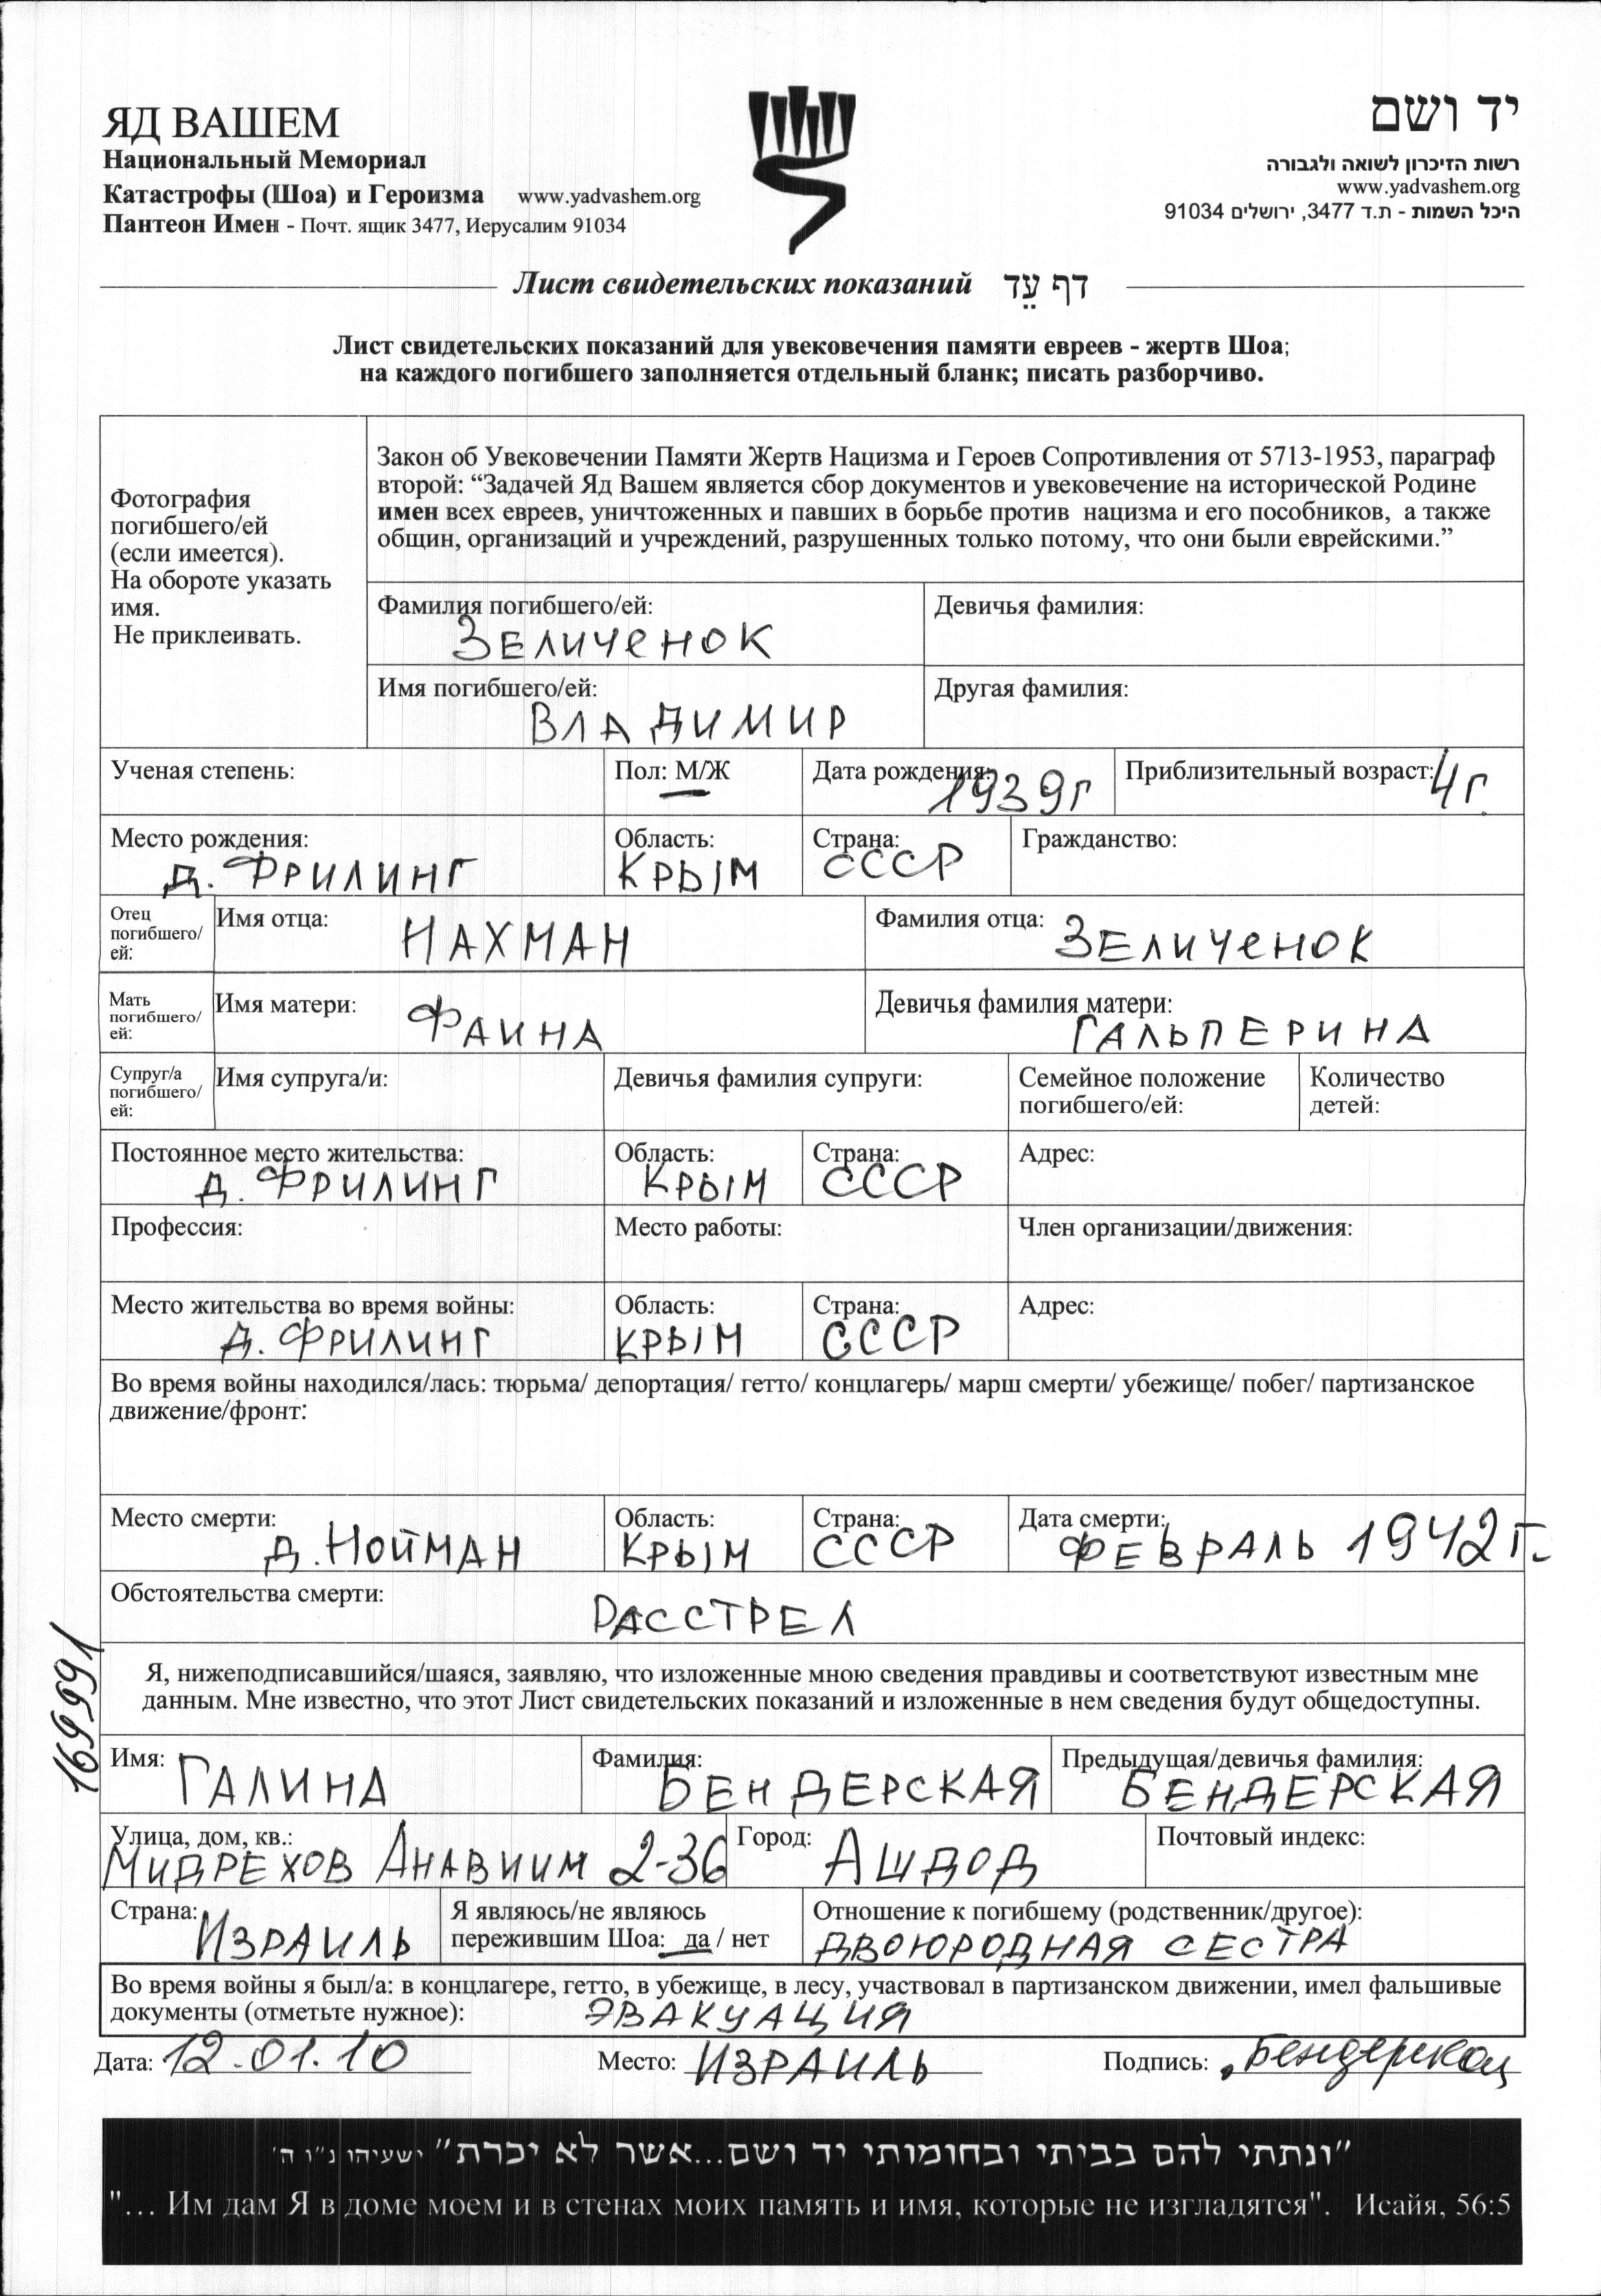 ЯД ВАШЕМ
Национальный Мемориал
Катастрофы (Шоа) и Героизма www.yadvashem.org
Пантеон Имен - Почт. ящик 3477, Иерусалим 91034
יד ושם
רשות הזיכרון לשואה ולגבורה
www.yadvashem.org
היכל השמות - ת.ד 3477, ירושלים 91034
Лист свидетельских показаний דף עֵד
Лист свидетельских показаний для увековечения памяти евреев - жертв Шоа;
на каждого погибшего заполняется отдельный бланк; писать разборчиво.
Фотография
погибшего/ей
(если имеется).
На обороте указать
имя.
Не приклеивать.
Закон об Увековечении Памяти Жертв Нацизма и Героев Сопротивления от 5713-1953, параграф
второй: “Задачей Яд Вашем является сбор документов и увековечение на исторической Родине
имен всех евреев, уничтоженных и павших в борьбе против нацизма и его пособников, а также
общин, организаций и учреждений, разрушенных только потому, что они были еврейскими.”
Фамилия погибшего/ей: Девичья фамилия:
ЗЕЛИЧЕНОК
Имя погибшего/ей: Другая фамилия:
ВЛАДИМИР
Ученая степень: Пол: М/Ж Дата рождения: 1939г Приблизительный возраст: 4г.
Место рождения: Область: Страна: Гражданство:
д. ФРИЛИНГ КРЫМ СССР
Отец
погибшего/
ей:
Имя отца: НАХМАН Фамилия отца: ЗЕЛИЧЕНОК
Мать
погибшего/
ей:
Имя матери: ФАИНА Девичья фамилия матери: ГАЛЬПЕРИНА
Супруг/а
погибшего/
ей:
Имя супруга/и: Девичья фамилия супруги: Семейное положение
погибшего/ей:
Количество
детей:
Постоянное место жительства: Область: Страна: Адрес:
д. ФРИЛИНГ КРЫМ СССР
Профессия: Место работы: Член организации/движения:
Место жительства во время войны: Область: Страна: Адрес:
д. ФРИЛИНГ КРЫМ СССР
Во время войны находился/лась: тюрьма/ депортация/ гетто/ концлагерь/ марш смерти/ убежище/ побег/ партизанское
движение/фронт:
Место смерти: Область: Страна: Дата смерти:
д. НОЙМАН КРЫМ СССР ФЕВРАЛЬ 1942г.
Обстоятельства смерти: РАССТРЕЛ
169991
Я, нижеподписавшийся/шаяся, заявляю, что изложенные мною сведения правдивы и соответствуют известным мне
данным. Мне известно, что этот Лист свидетельских показаний и изложенные в нем сведения будут общедоступны.
Имя: Фамилия: Предыдущая/девичья фамилия:
ГАЛИНА БЕНДЕРСКАЯ БЕНДЕРСКАЯ
Улица, дом, кв.: Город: Почтовый индекс:
МИДРЕХОВ АНАВИИМ 2-36 АШДОД
Страна: Я являюсь/не являюсь Отношение к погибшему (родственник/другое):
ИЗРАИЛЬ пережившим Шоа: да / нет ДВОЮРОДНАЯ СЕСТРА
Во время войны я был/а: в концлагере, гетто, в убежище, в лесу, участвовал в партизанском движении, имел фальшивые
документы (отметьте нужное): ЭВАКУАЦИЯ
Дата: 12.01.10 Место: ИЗРАИЛЬ Подпись: Бендерская
"ונתתי להם בביתי ובחומותי יד ושם...אשר לא יכרת" ישעיהו נ"ו ה'
"... Им дам Я в доме моем и в стенах моих память и имя, которые не изгладятся". Исайя, 56:5